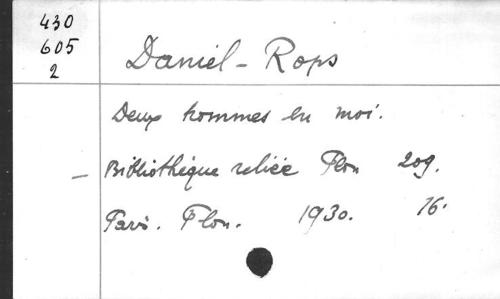 430
605
2
Daniel-Rops
Deux hommes en moi.
— Bibliothèque reliée Plon 209.
Paris. Plon. 1930. 16.